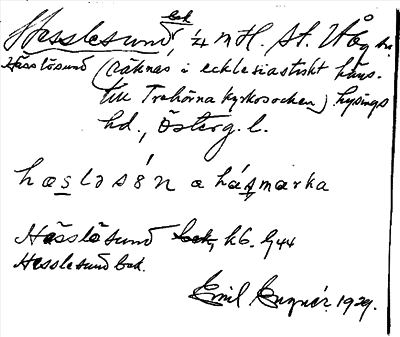 Hesslesund, bok ¼ mtl. St. Håg hr.
Hässlösund (räknas i ecklesiastiskt häns.
till Trehörna kyrkosocken) Lysings
hd., Österg. l.
hæslǝsún a hásmarka
Hässlösund bok, kb. 944
Hesslesund bok.
Emil Lagnér 1929.